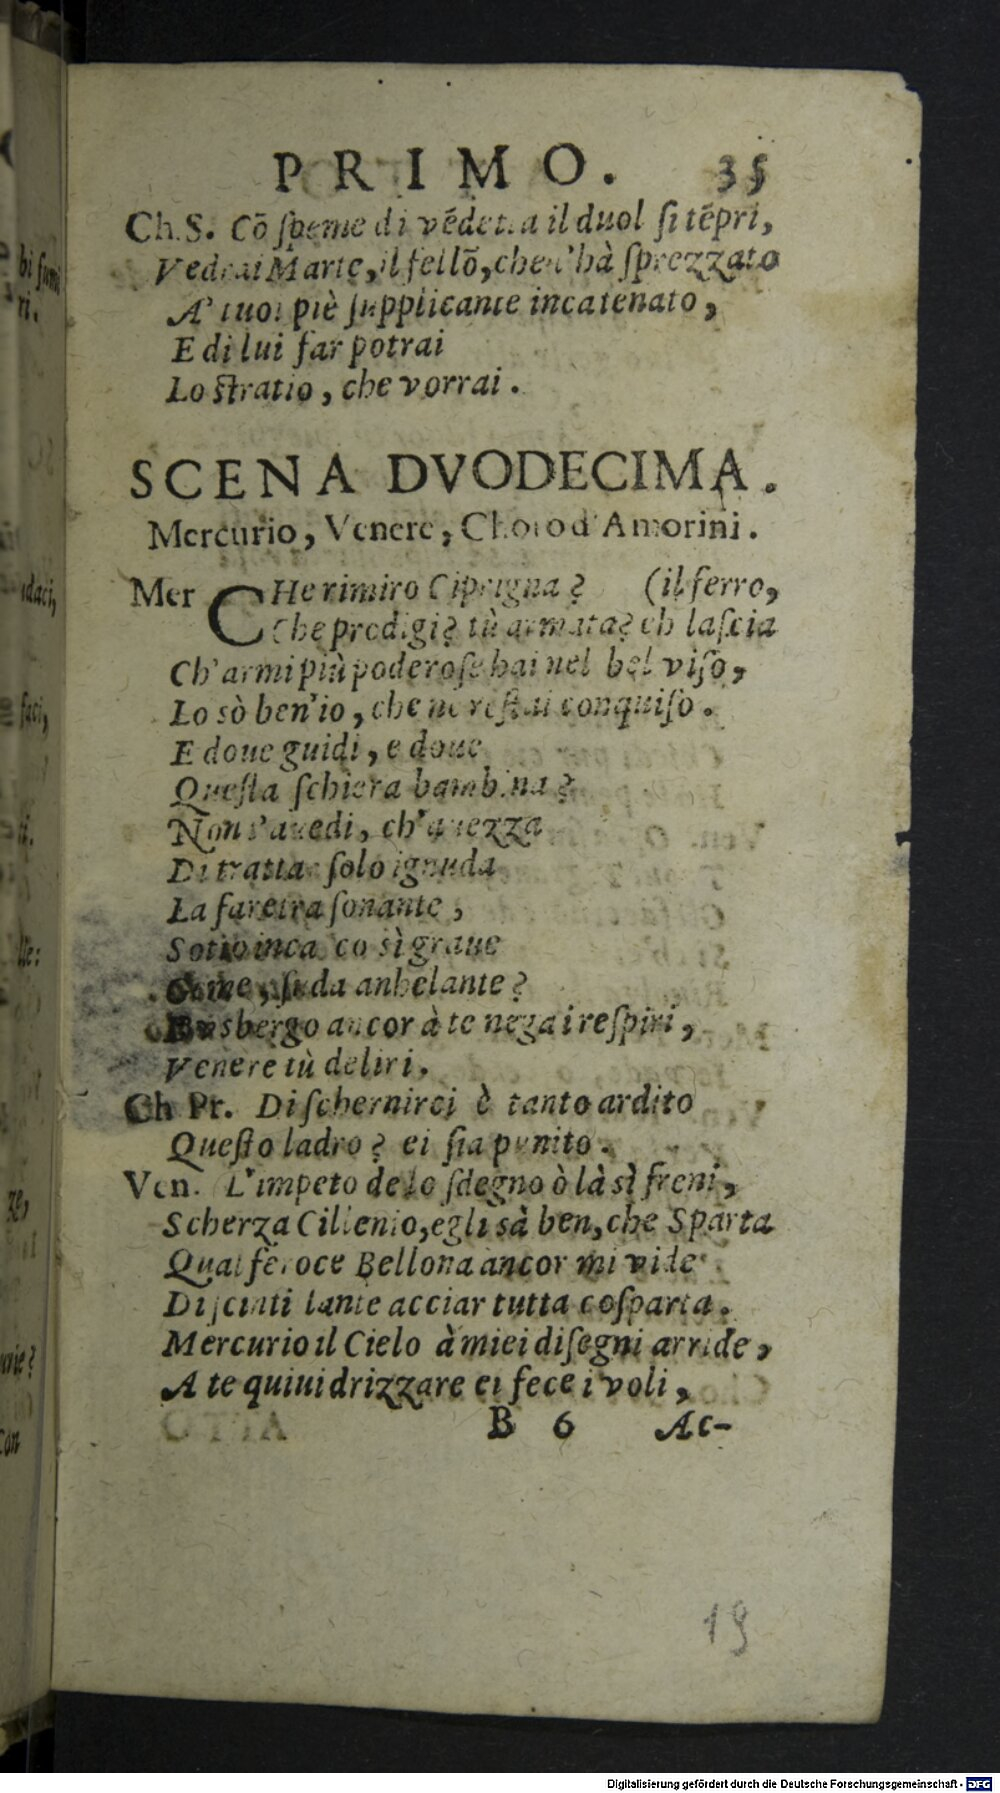 PRIMO. 35
Ch.S. Cõ ſpeme di vẽdetta il duol ſi tẽpri,
Vedrai Marte, il fellõ, che t'hà ſprezzato
A' tuoi piè ſupplicante incatenato,
E di lui far potrai
Lo ſtratio, che vorrai.
SCENA DVODECIMA.
Mercurio, Venere, Choro d'Amorini.
Mer CHe rimiro Ciprigna? (il ferro,
Che prodigi? tù armata? eh laſcia
Ch'armi più poderoſe hai nel bel viſo,
Lo sò ben'io, che ne reſtai conquiſo.
E doue guidi, e doue
Queſta ſchiera bambina?
Non t'auedi, ch'auezza
Di trattar ſolo ignuda
La faretra ſonante,
Sotto incarco sì graue
Geme, ſuda anhelante?
L'Vsbergo ancor à te nega i reſpiri,
Venere tù deliri.
Ch Pr. Di ſchernirci è tanto ardito
Queſto ladro? ei ſia punito.
Ven. L'impeto de lo ſdegno ò là sì freni,
Scherza Cillenio, egli sà ben, che Sparta
Qual feroce Bellona ancor mi vide
Di ſcintillante acciar tutta coſparta.
Mercurio il Cielo à miei diſegni arride,
A te quiui drizzare ei fece i voli,
B 6 Ac-
19
bi
ri.
daci,
faci,
ti.
lle:
ze,
con
Digitalisierung gefördert durch die Deutsche Forschungsgemeinschaft - DFG